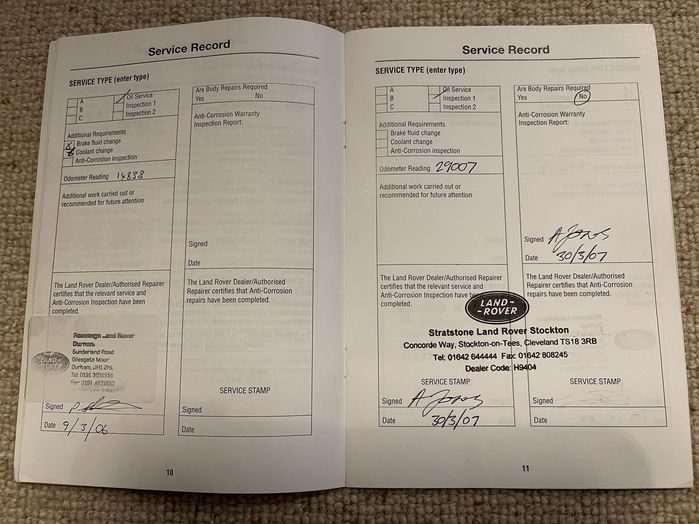 Service Record
SERVICE TYPE (enter type)
A
B
C
Oil Service
Inspection 1
Inspection 2
Additional Requirements
Brake fluid change
Coolant change
Anti-Corrosion inspection
Odometer Reading 14838
Additional work carried out or
recommended for future attention
The Land Rover Dealer/Authorised Repairer
certifies that the relevant service and
Anti-Corrosion Inspection have been
completed.
LAND
ROVER
Land Rover
Durham
Sunderland Road
Gilesgate Moor
Durham, DH1 2HL
Signed
Date 9/3/06
Are Body Repairs Required
Yes No
Anti-Corrosion Warranty
Inspection Report:
Signed
Date
The Land Rover Dealer/Authorised
Repairer certifies that Anti-Corrosion
repairs have been completed.
SERVICE STAMP
Signed
Date
10
Service Record
SERVICE TYPE (enter type)
A
B
C
Oil Service
Inspection 1
Inspection 2
Additional Requirements
Brake fluid change
Coolant change
Anti-Corrosion inspection
Odometer Reading 29007
Additional work carried out or
recommended for future attention
Are Body Repairs Required
Yes No
Anti-Corrosion Warranty
Inspection Report:
Signed A Jones
Date 30/3/07
The Land Rover Dealer/Authorised Repairer
certifies that the relevant service and
Anti-Corrosion Inspection have been
completed.
The Land Rover Dealer/Authorised
Repairer certifies that Anti-Corrosion
repairs have been completed.
LAND-
-ROVER
Stratstone Land Rover Stockton
Concorde Way, Stockton-on-Tees, Cleveland TS18 3RB
Tel: 01642 644444 Fax: 01642 808245
Dealer Code: H9404
SERVICE STAMP
Signed A Jones
Date 30/3/07
SERVICE STAMP
Signed
Date
11